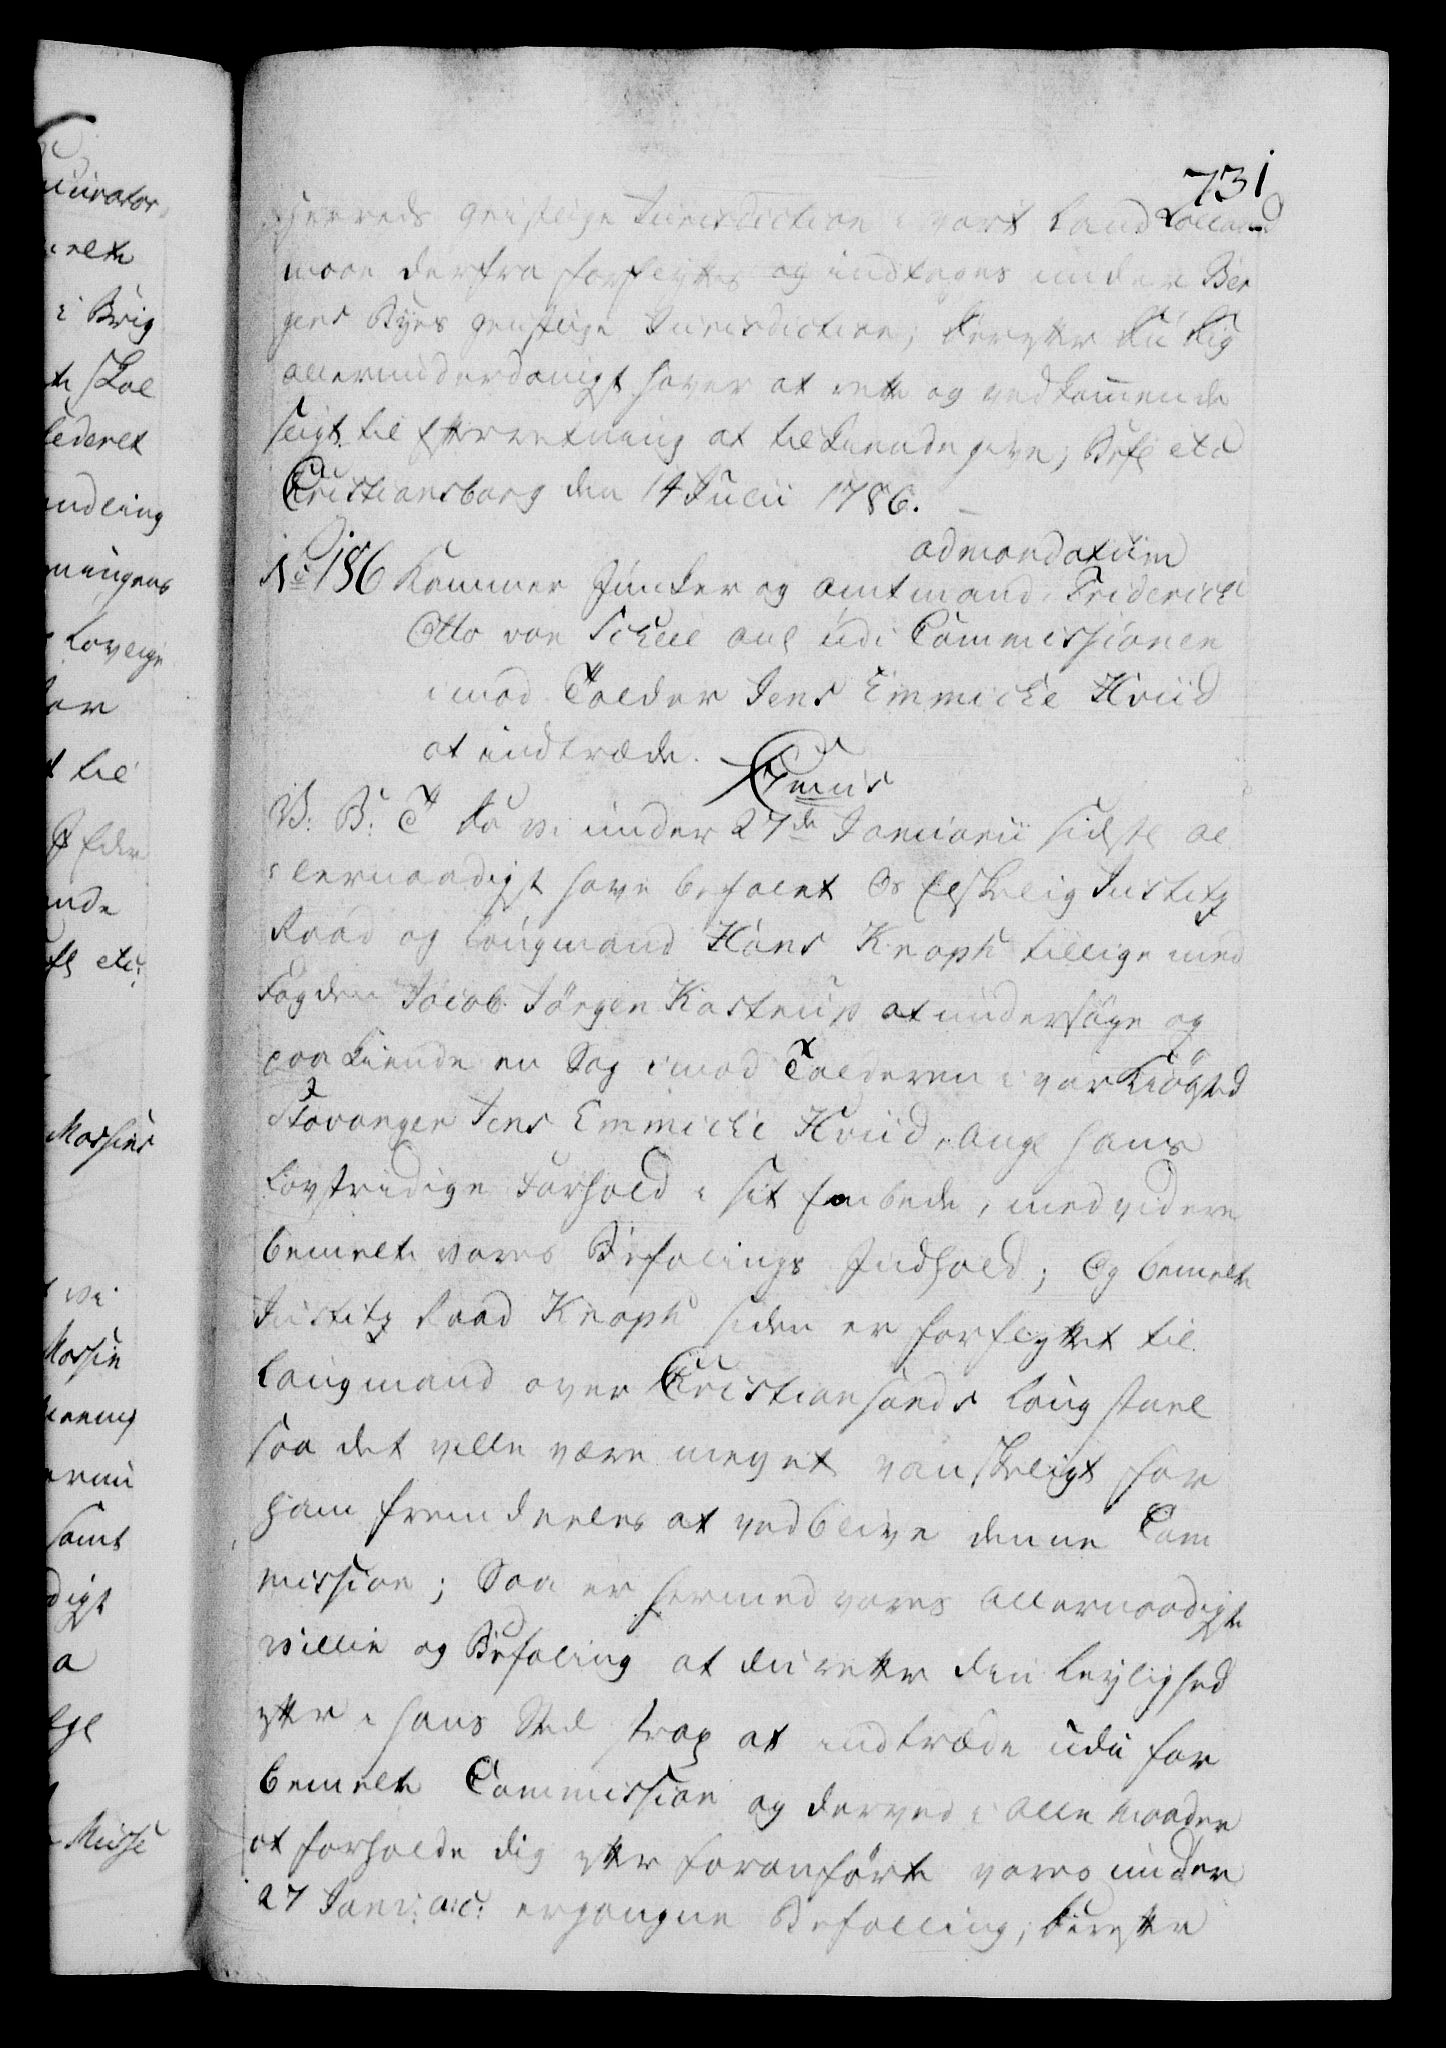 731
herreds geistlige Jurisdiction i vort Land Lolland
maae derfra forflyttes og indtages under Ber
gens Byes geistlige Jurisdiction; derefter du dig
allerunderdanigst haver at rette og vedkommende
sligt til Efterretning at tilkiendegive; Befl etc
Christiansborg den 14 Julii 1786.
admandatum
No 186 Kammer Junker og Amtmand Friderich
Otto von Scheel anl udi Commissionen
imod Tolder Jens Emmiche Hviid
at indtræde.
V: B: T Da vi under 27de Januarii sidstl al
lernaadigst have befalet Os Elskelig Justitz
Raad og Laugmand Hans Knoph tillige med
Fogden Jacob Jörgen Kastrup at undersöge og
paakiende en Sag imod Tolderen i vor Kiöbsted
Stavanger Jens Emmiche Hviid, ang hans
Lovstridige Forhold i sit Embede, med videre
bemelte vores Befalings Indhold; Og bemelte
Justitz Raad Knoph siden er forflyttet til
Laugmand over Christiansands Laugstoel
saa det ville være meget vanskeligt for
ham fremdeeles at vedblive denne Com
mission; Saa er hermed vores allernaadigste
Villie og Befaling at du retter din Leylighed
efter i hans Sted strax at indtræde udi for
bemelte Commission og derved i alle Maader
at forholde dig efter foranförte vores under
27 Janu: a:c: ergangne Befalling; derefter